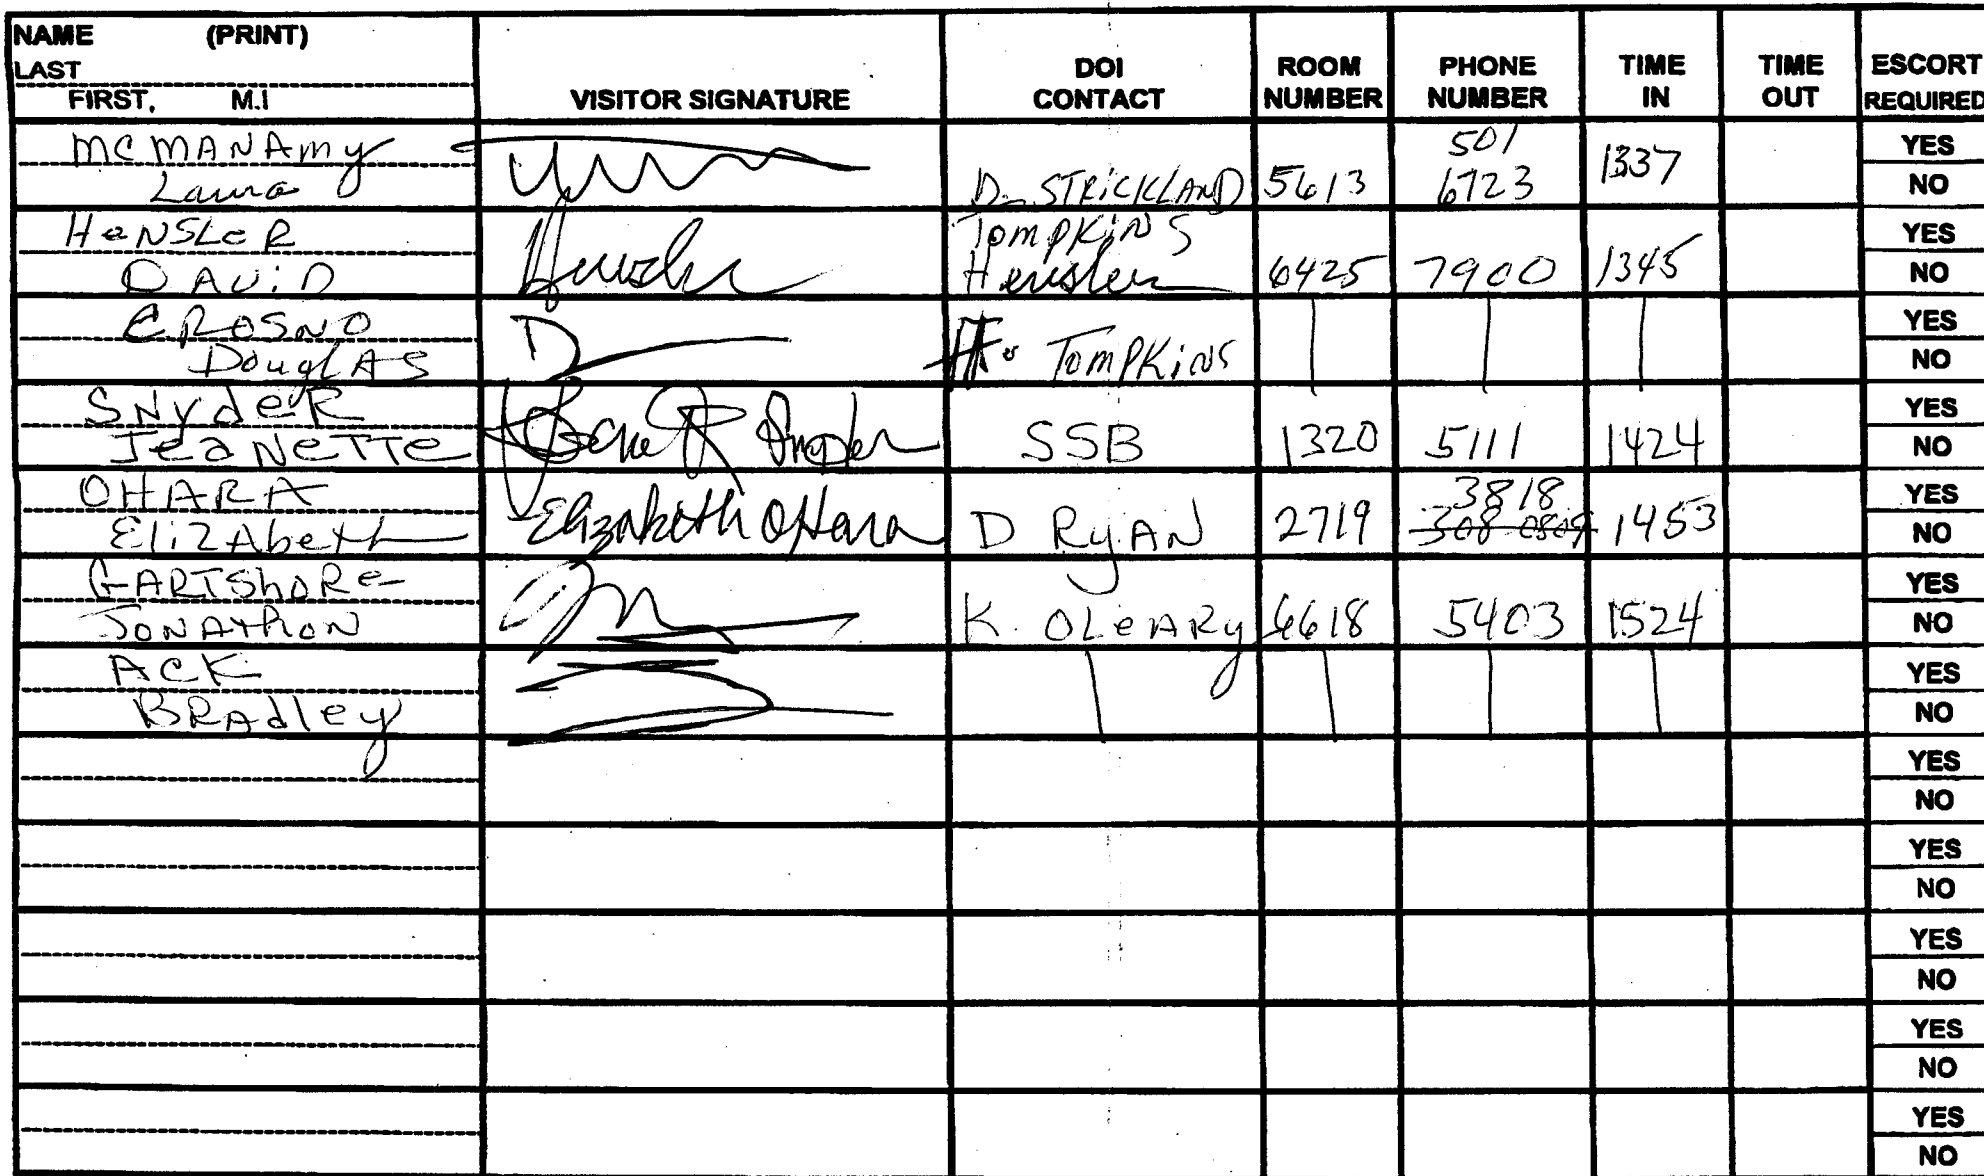 NAME (PRINT)
LAST
FIRST, M.I
VISITOR SIGNATURE
DOI CONTACT
ROOM NUMBER
PHONE NUMBER
TIME IN
TIME OUT
ESCORT REQUIRED
MCMANAmy
Laura
D. STRICKLAND 5613 501 6723 1337
YES
NO
HeNSLeR
DAViD
Hensler
TompKiNS
Hensler 6425 7900 1345
YES
NO
CROSNO
DouglAS
TompKiNS
YES
NO
SNydeR
JeaNeTTe
Snyder
SSB 1320 5111 1424
YES
NO
OHARA
ElizAbeth
Elizabeth OHara
D RyAN 2719 3818 1453
YES
NO
GARTShoRe
JONAThoN
K. OLeARy 6618 5403 1524
YES
NO
ACK
BRAdley
YES
NO
YES
NO
YES
NO
YES
NO
YES
NO
YES
NO